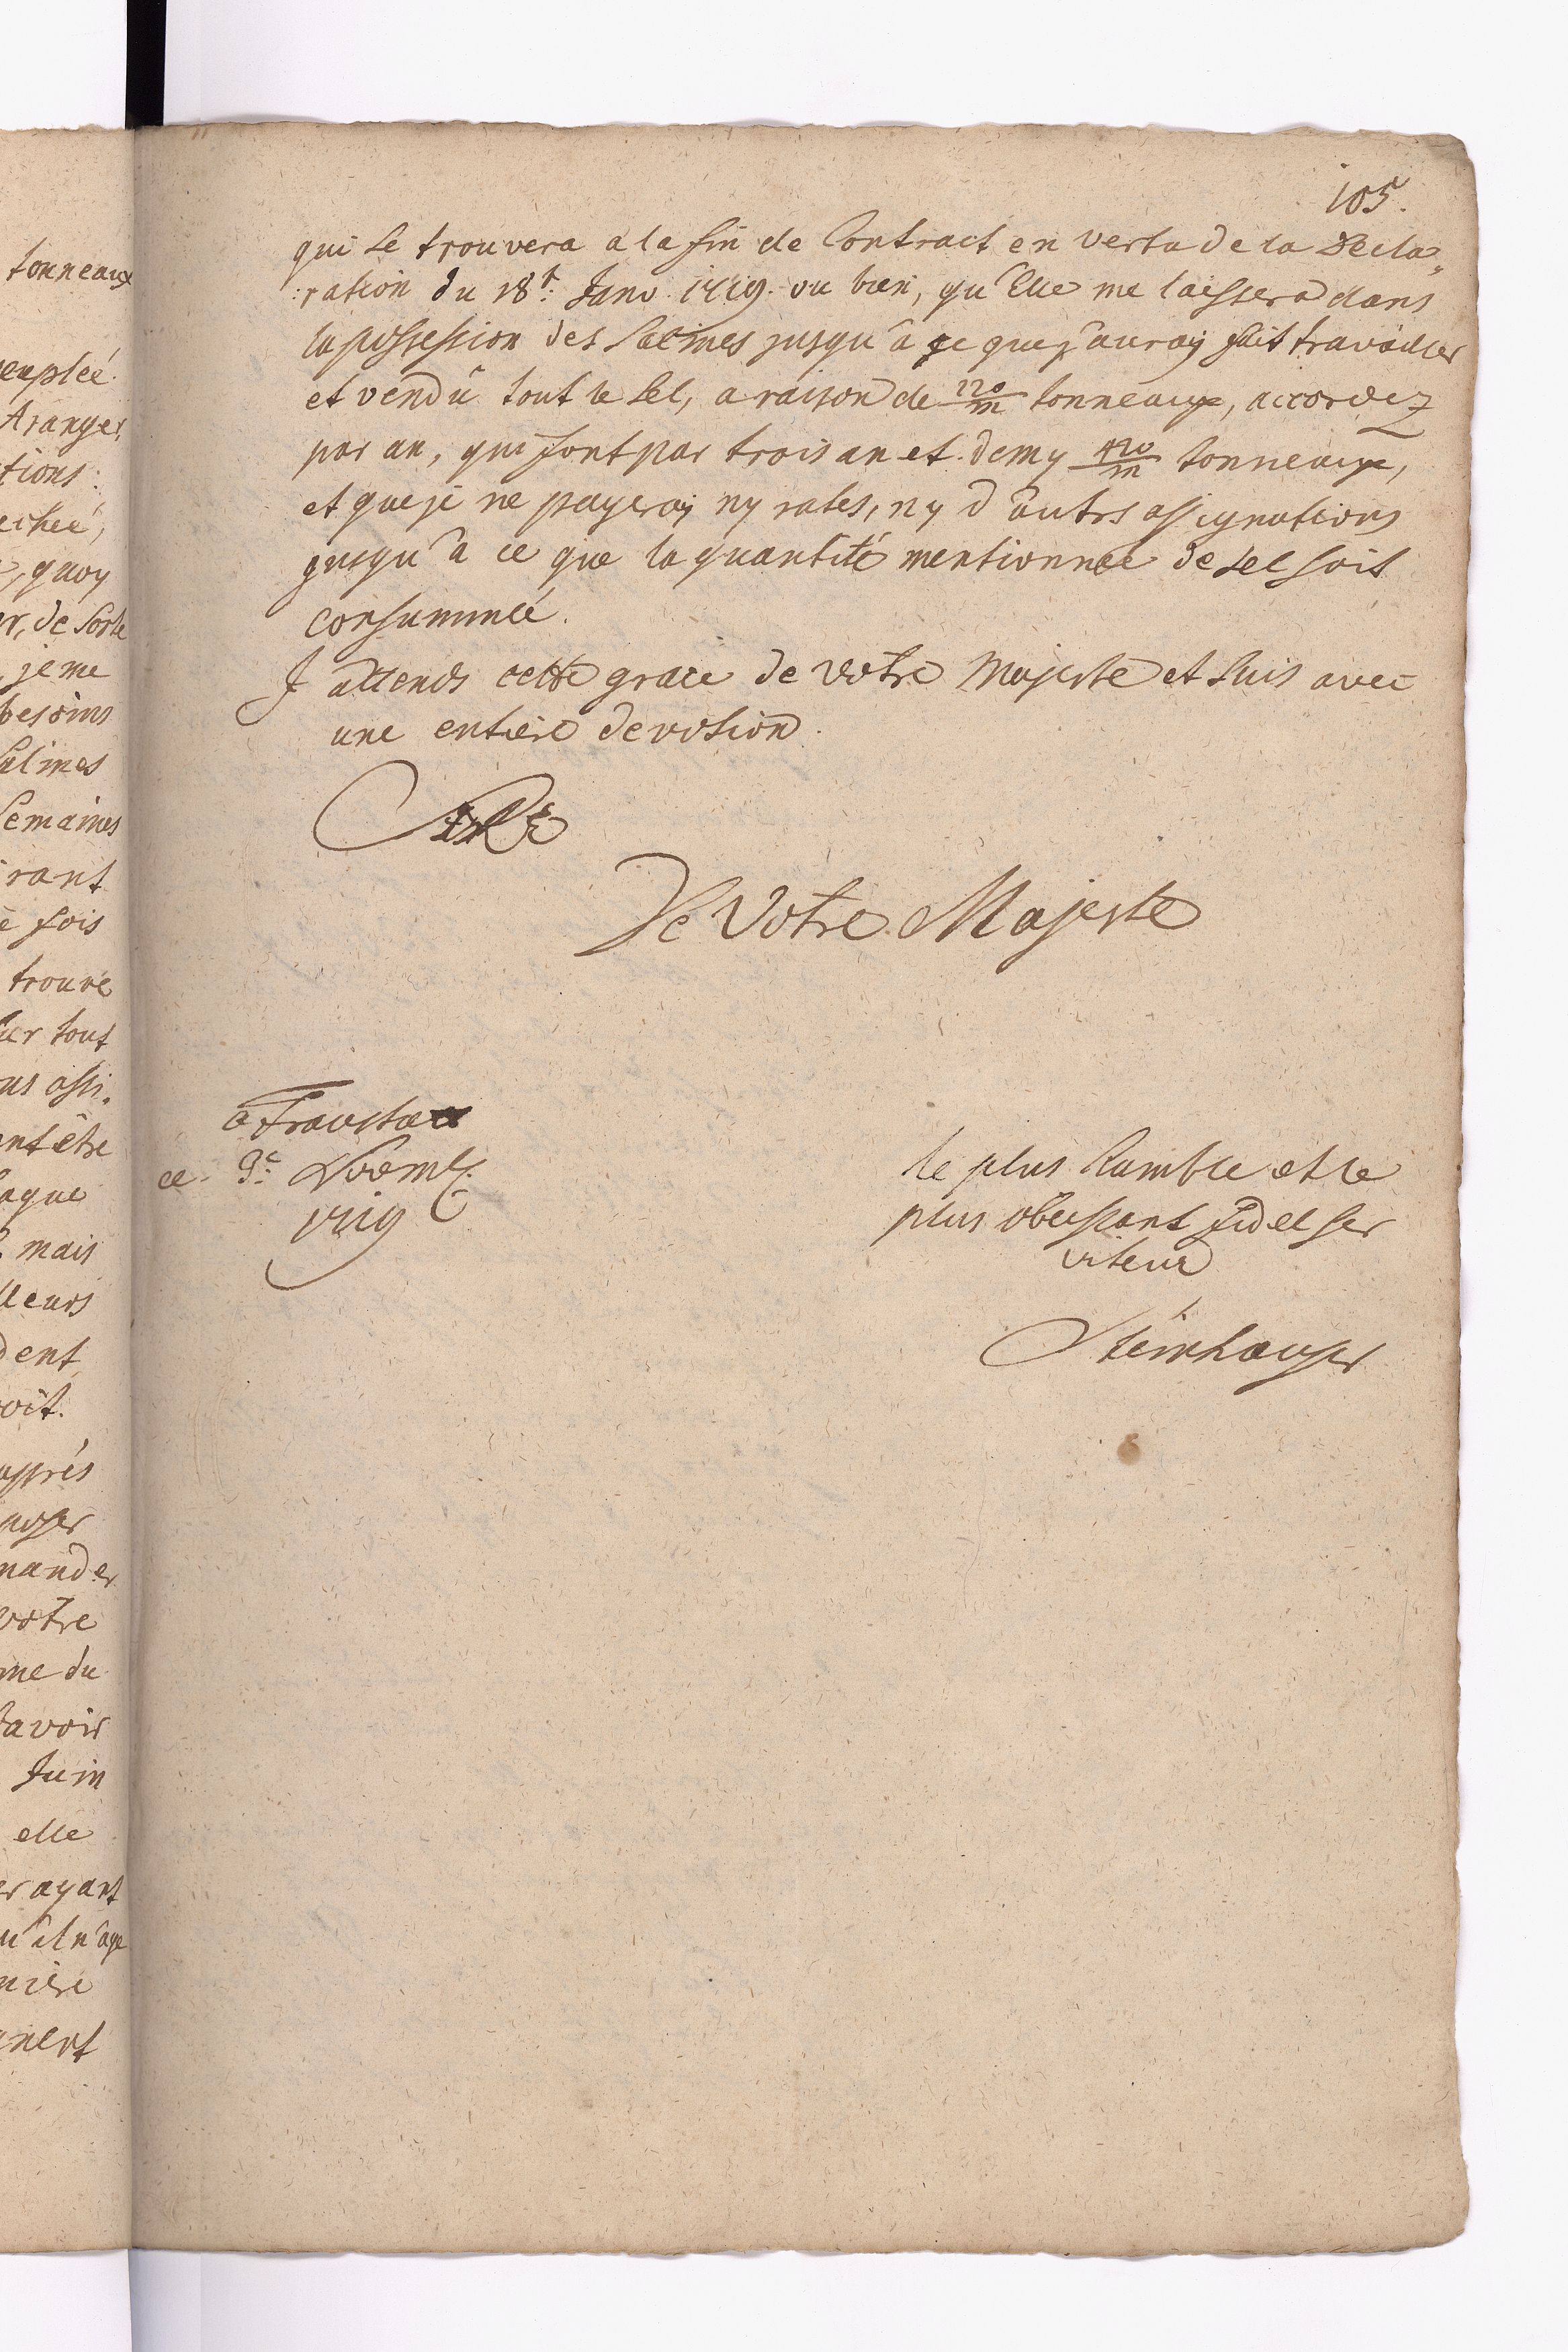 tonneaux
Aranger,
tions:
, quoy
er, de Sorte
jeme
besoins
Salines
Semaines
rant
fois
trouve
tout
assi„
ent être
mais
lleurs
dent
oit.
apprés
mander
votre
me du
avoir
Juin
elle
ayant
niere
105.
qui se trouvera a la fin de Contract en vertu de la Decla„
:ration du 18t: Janv. 1719. ou bien, qu'Elle me laissera dans
la possession des Salines jusqu'a ce que j'auray fait travailler
et vendû tout le sel, a raison de 120/m tonneaux, accordez
par an, qui font par trois an et demy 420/m tonneaux,
et que je ne payeray ny rates, ny d'autrs assignations
jusqu'a ce que la quantité mentionnée de sel soit
consummée.
J'attends cette grace de Votre Majesté et suis avec
une entiere devotion.
Sire
De Votre Majesté
a Fraustat
ce 9e Novembr.
1719
le plus humble et le
plus obeissant fidel ser
viteur
Steinhauser